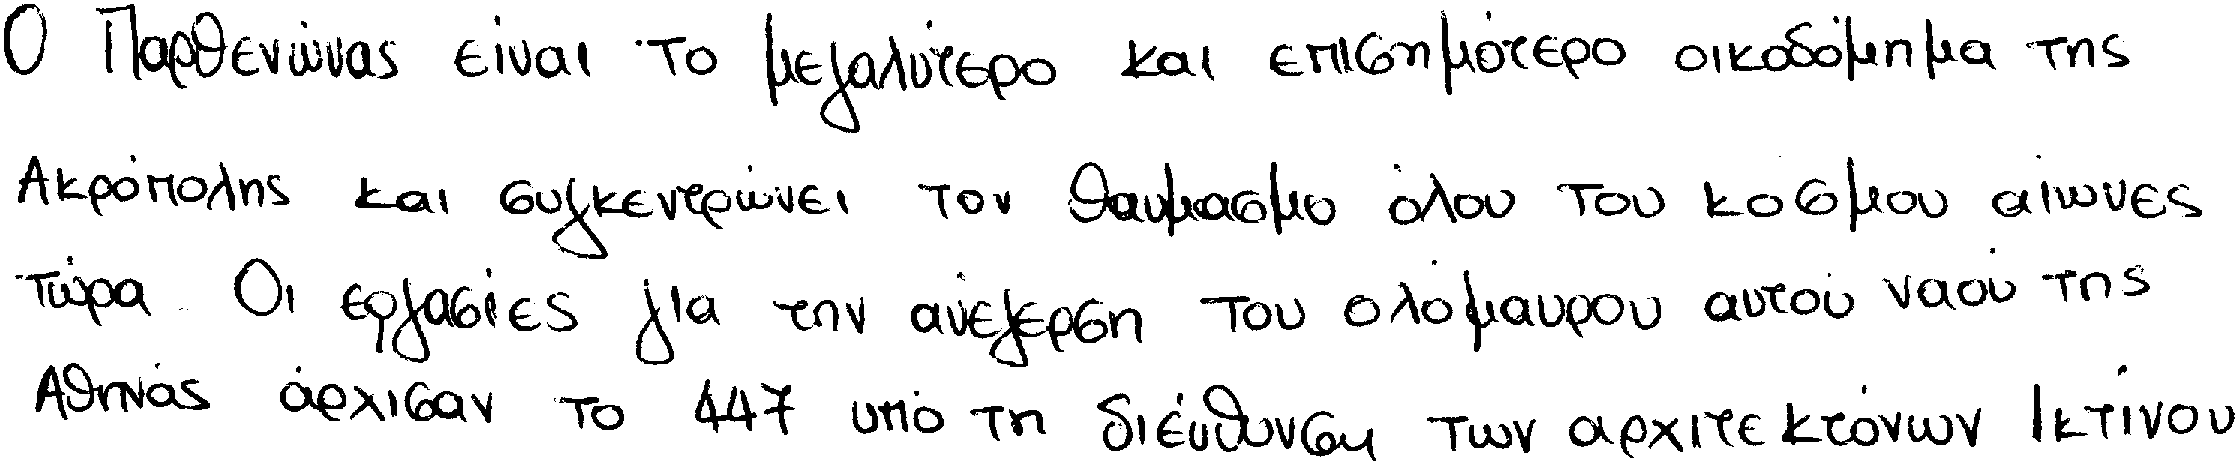 Ο Παρθενώνας είναι το μεγαλύτερο και επισημότερο οικοδόμημα της
Ακρόπολης και συγκεντρώνει τον θαυμασμο όλου του κοσμου αιωνες
τώρα. Οι εργασίες για την ανέγερση του ολόμαυρου αυτού ναού της
Αθηνάς άρχισαν το 447 υπό τη διεύθυνση των αρχιτεκτόνων Ικτίνου